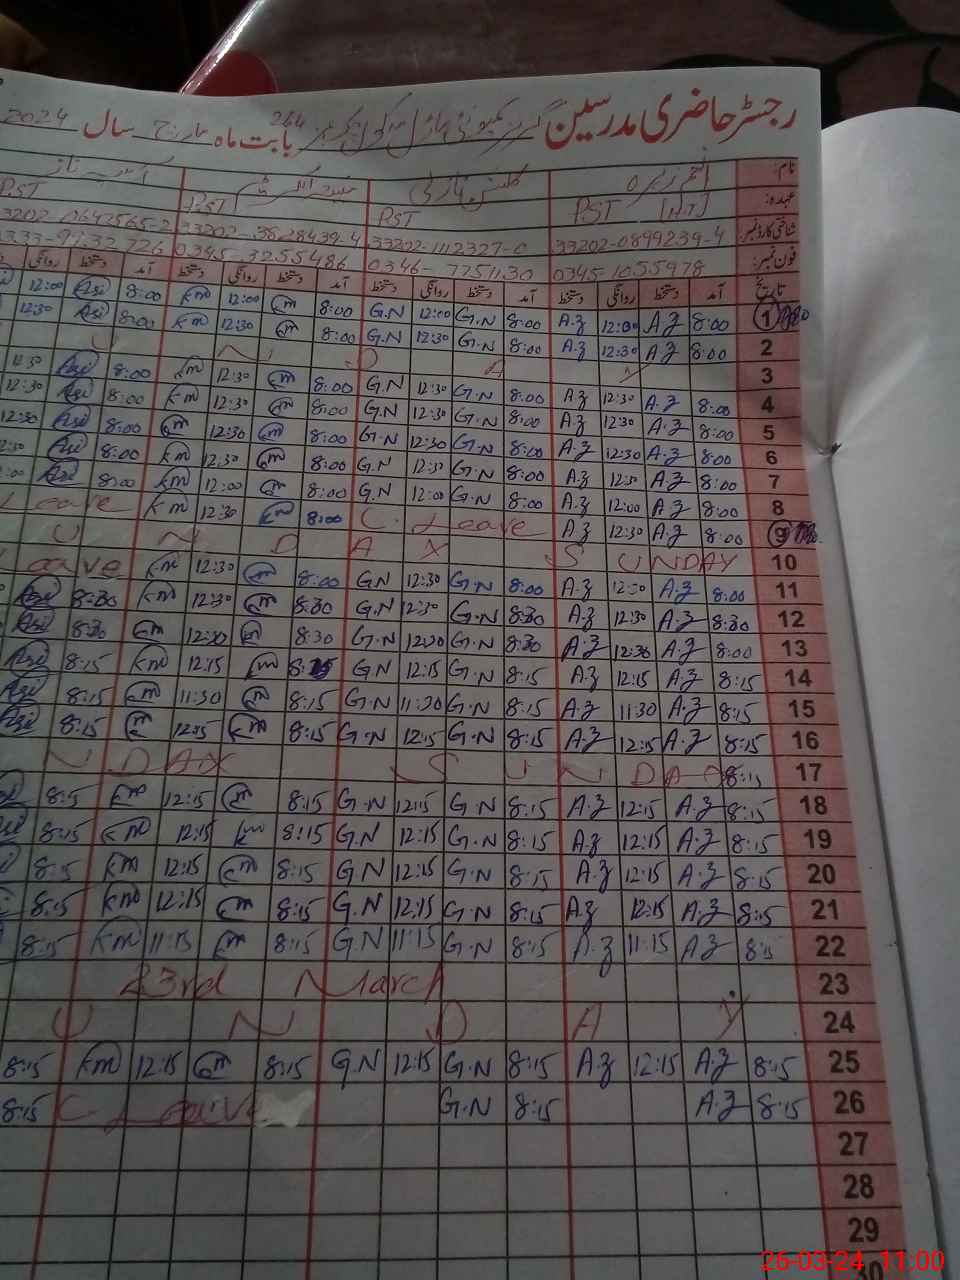 رجسٹر حاضری مدرسین گورنمنٹ کمیونٹی ماڈل سکول چک نمبر 264 بابت ماہ مارچ سال 2024
نام:
عہدہ: PST PST PST PST
شناختی کارڈ نمبر: 33202-0899239-4 33202-1112327-0 33202-3628439-4
فون نمبر: 0345-1055978 0346-7751130 0345-3255486
تاریخ آمد دستخط روانگی دستخط آمد دستخط روانگی دستخط آمد دستخط روانگی دستخط آمد دستخط روانگی
1 8:00 A.Z 12:00 A.Z 8:00 G.N 12:00 G.N 8:00 Km 12:00 Km 8:00 12:00
2 8:00 A.Z 12:30 A.Z 8:00 G.N 12:30 G.N 8:00 Km 12:30 Km 8:00 12:30
3 U N D A Y
4 8:00 A.Z 12:30 A.Z 8:00 G.N 12:30 G.N 8:00 Km 12:30 Km 8:00 12:30
5 8:00 A.Z 12:30 A.Z 8:00 G.N 12:30 G.N 8:00 Km 12:30 Km 8:00 12:30
6 8:00 A.Z 12:30 A.Z 8:00 G.N 12:30 G.N 8:00 Km 12:30 Km 8:00 12:30
7 8:00 A.Z 12:30 A.Z 8:00 G.N 12:30 G.N 8:00 Km 12:30 Km 8:00
8 8:00 A.Z 12:00 A.Z 8:00 G.N 12:00 G.N 8:00 Km 12:00 Km 8:00
9 8:00 A.Z 12:30 A.Z C. Leave 8:00 Km 12:30 Km Leave
10 S UNDAY U N D A Y
11 8:00 A.Z 12:30 A.Z 8:00 G.N 12:30 G.N 8:00 Km 12:30 Km Leave
12 8:30 A.Z 12:30 A.Z 8:30 G.N 12:30 G.N 8:30 Km 12:30 Km 8:30
13 8:00 A.Z 12:30 A.Z 8:30 G.N 12:30 G.N 8:30 Km 12:30 Km 8:30
14 8:15 A.Z 12:15 A.Z 8:15 G.N 12:15 G.N 8:15 Km 12:15 Km 8:15
15 8:15 A.Z 11:30 A.Z 8:15 G.N 11:30 G.N 8:15 Km 11:30 Km 8:15
16 8:15 A.Z 12:15 A.Z 8:15 G.N 12:15 G.N 8:15 Km 12:15 Km 8:15
17 8:15 S U N D A Y N D A Y
18 8:15 A.Z 12:15 A.Z 8:15 G.N 12:15 G.N 8:15 Km 12:15 Km 8:15
19 8:15 A.Z 12:15 A.Z 8:15 G.N 12:15 G.N 8:15 Km 12:15 Km 8:15
20 8:15 A.Z 12:15 A.Z 8:15 G.N 12:15 G.N 8:15 Km 12:15 Km 8:15
21 8:15 A.Z 12:15 A.Z 8:15 G.N 12:15 G.N 8:15 Km 12:15 Km 8:15
22 8:15 A.Z 11:15 A.Z 8:15 G.N 11:15 G.N 8:15 Km 11:15 Km 8:15
23 23rd March
24 U N D A Y
25 8:15 A.Z 12:15 A.Z 8:15 G.N 12:15 G.N 8:15 Km 12:15 Km 8:15
26 8:15 A.Z 8:15 G.N C Leave 8:15
27
28
29
30
26-03-24 11:00